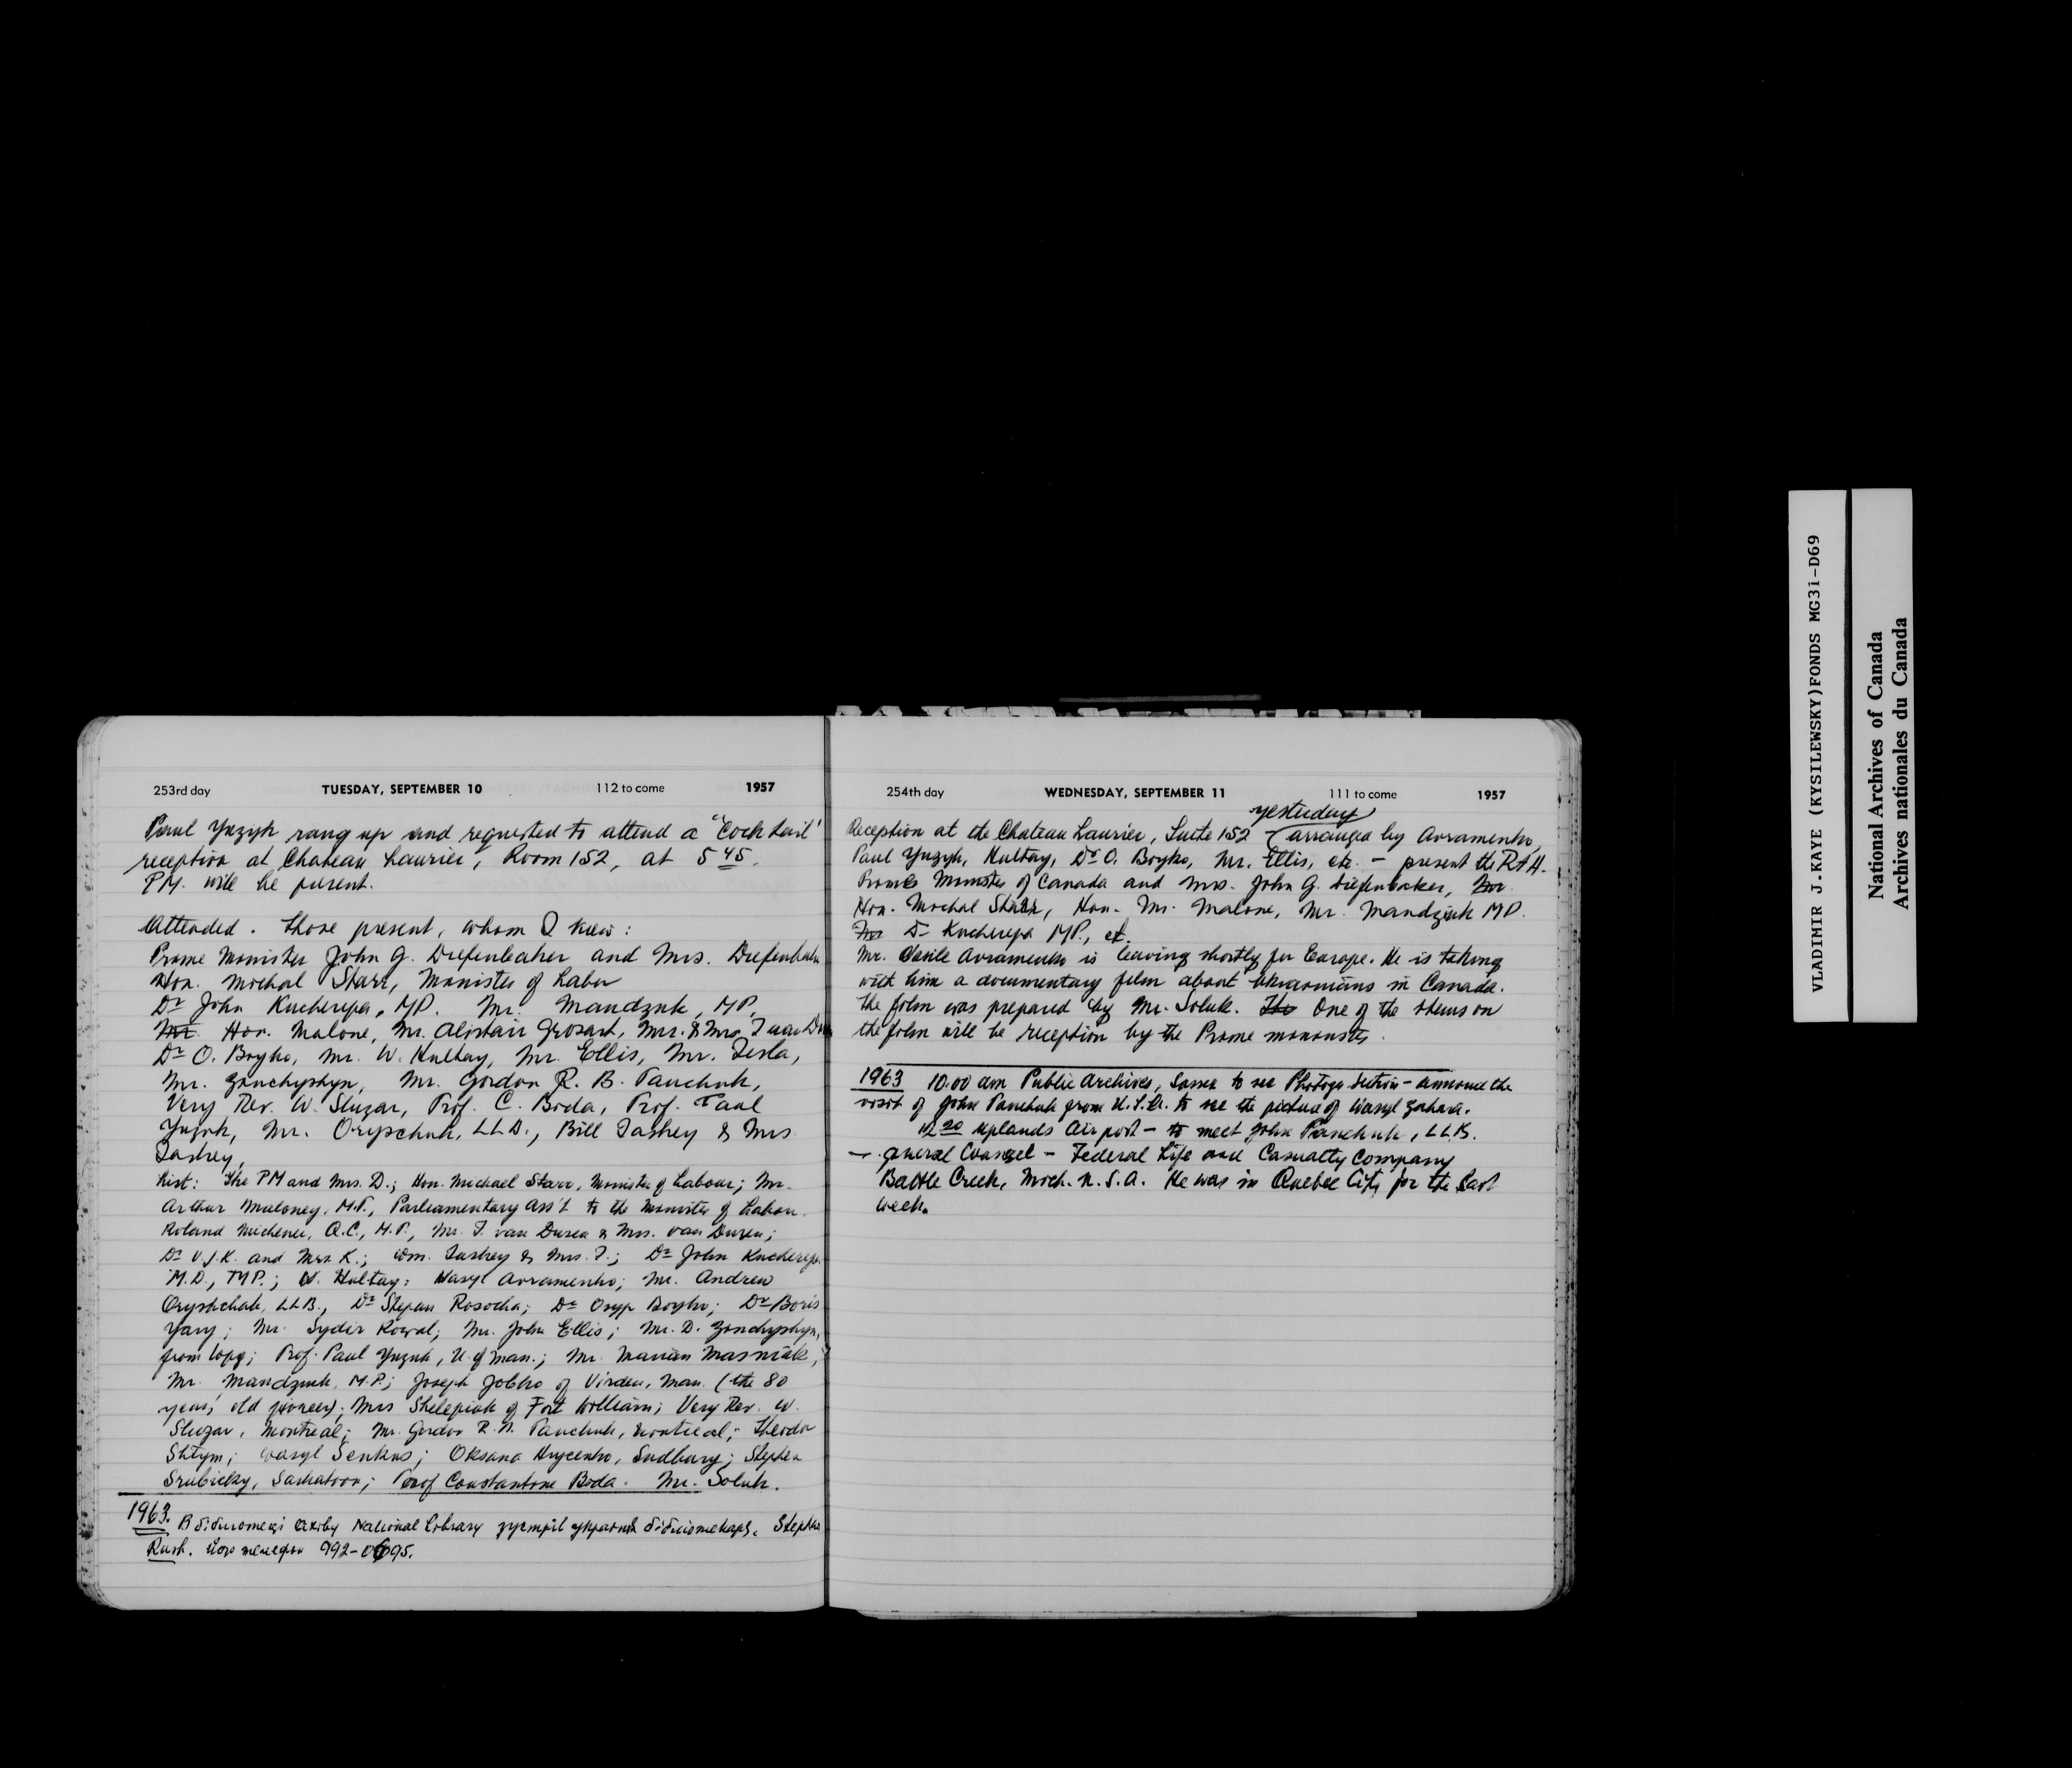 253rd day TUESDAY, SEPTEMBER 10 112 to come 1957
Paul Yuzyk rang up and requested to attend a "Cocktail'
reception at Chateau Laurier, Room 152, at 5 45.
PM. will be present.
Attended. Those present, whom I knew:
Prime Minister John G. Diefenbaker and Mrs. Diefenbaker
Hon. Michal Starr, Minister of Labor
Dr John Kucherepa, MP. Mr. Mandzuk, MP,
Mr. Hon. Malone, Mr. Alistair Grosart, Mr. & Mrs. T van
Dr O. Boyko, Mr. W. Hultay, Mr. Ellis, Mr. Tesla,
Mr. Zonchyshyn, Mr. Gordon R. B. Panchuk,
Very Rev. W. Sluzar, Prof. C. Bida, Prof. Paul
Yuzyk, Mr. Oryschuk, LL.D., Bill Tashey & Mrs
Tashey,
List: The PM and Mrs. D.; Hon. Michael Starr, Minister of Labour; Mr.
Arthur Maloney, M.P., Parliamentary Ass't to the Minister of Labour.
Roland Michener, Q.C., M.P., Mr. T. van Dusen & Mrs. van Dusen;
Dr V.J.K. and Mrs K.; Wm. Tashey & Mrs. T.; Dr John Kucherepa
M.D., MP.; W. Hultay; Wasyl Avramenko; Mr. Andrew
Oryshchuk, LLB., Dr Stepan Rosocha; Dr Osyp Boyko; Dr Boris
Yary; Mr. Sydir Kowal; Mr. John Ellis; Mr. D. Zonchyshyn,
from Wpg; Prof. Paul Yuzyk, U. of Man.; Mr. Marian Masniak,
Mr. Mandzuk, M.P.; Joseph of Virden, Man. (the 80
years old pioneer); Mrs Shelepiuk of Fort William; Very Rev. W.
Sluzar, Montreal; Mr. Gordon R. B. Panchuk, Montreal; Theodor
Shtym; Wasyl Senkus; Oksana Hrycenko, Sudbury; Stephen
Srubicky, Saskatoon; Prof Constantine Bida. Mr. Soluk.
1963. В бібліотеці National Library зустріл бібліотекар. Stephen
Rush. Його телефон 992-0695.
254th day WEDNESDAY, SEPTEMBER 11 111 to come 1957
yesterday
Reception at the Chateau Laurier, Suite 152 – (arranged by Avramenko,
Paul Yuzyk, Hultay, Dr O. Boyko, Mr. Ellis, etc. – present the Rt H.
Prime Minister of Canada and Mrs. John G. Diefenbaker, Mr.
Hon. Michal Starr, Hon. Mr. Malone, Mr. Mandziuk MP.
Mr Dr Kucherepa MP., et.
Mr. Vasile Avramenko is leaving shortly for Europe. He is taking
with him a documentary film about Ukrainians in Canada.
The film was prepared by Mr. Soluk. The One of the items on
the film will be reception by the Prime minister.
1963 10.00 am Public Archives, to see Photogr. Section – announce the
visit of John Panchuk from U.S.A. to see the picture of Wasyl Zahara.
Uplands Airport – to meet John Panchuk, LL.B.
– general Counsel – Federal Life and Casualty Company
Battle Creek, Mich. U.S.A. He was in Quebec City for the last
week.
VLADIMIR J.KAYE (KYSILEWSKY)FONDS MG31-D69
National Archives of Canada
Archives nationales du Canada